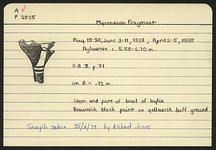 A ✓
P 2805
Mycenaean Fragment
May 19-20, June 9-11, 1937, April 2-5, 1938
c. 5.50-6.70 m.
O.B. II p. 71
c. 12 m.
Stem and part of bowl of kylix
Brownish black paint on yellowish buff ground
Sample taken 25/6/79 by Richard Jones